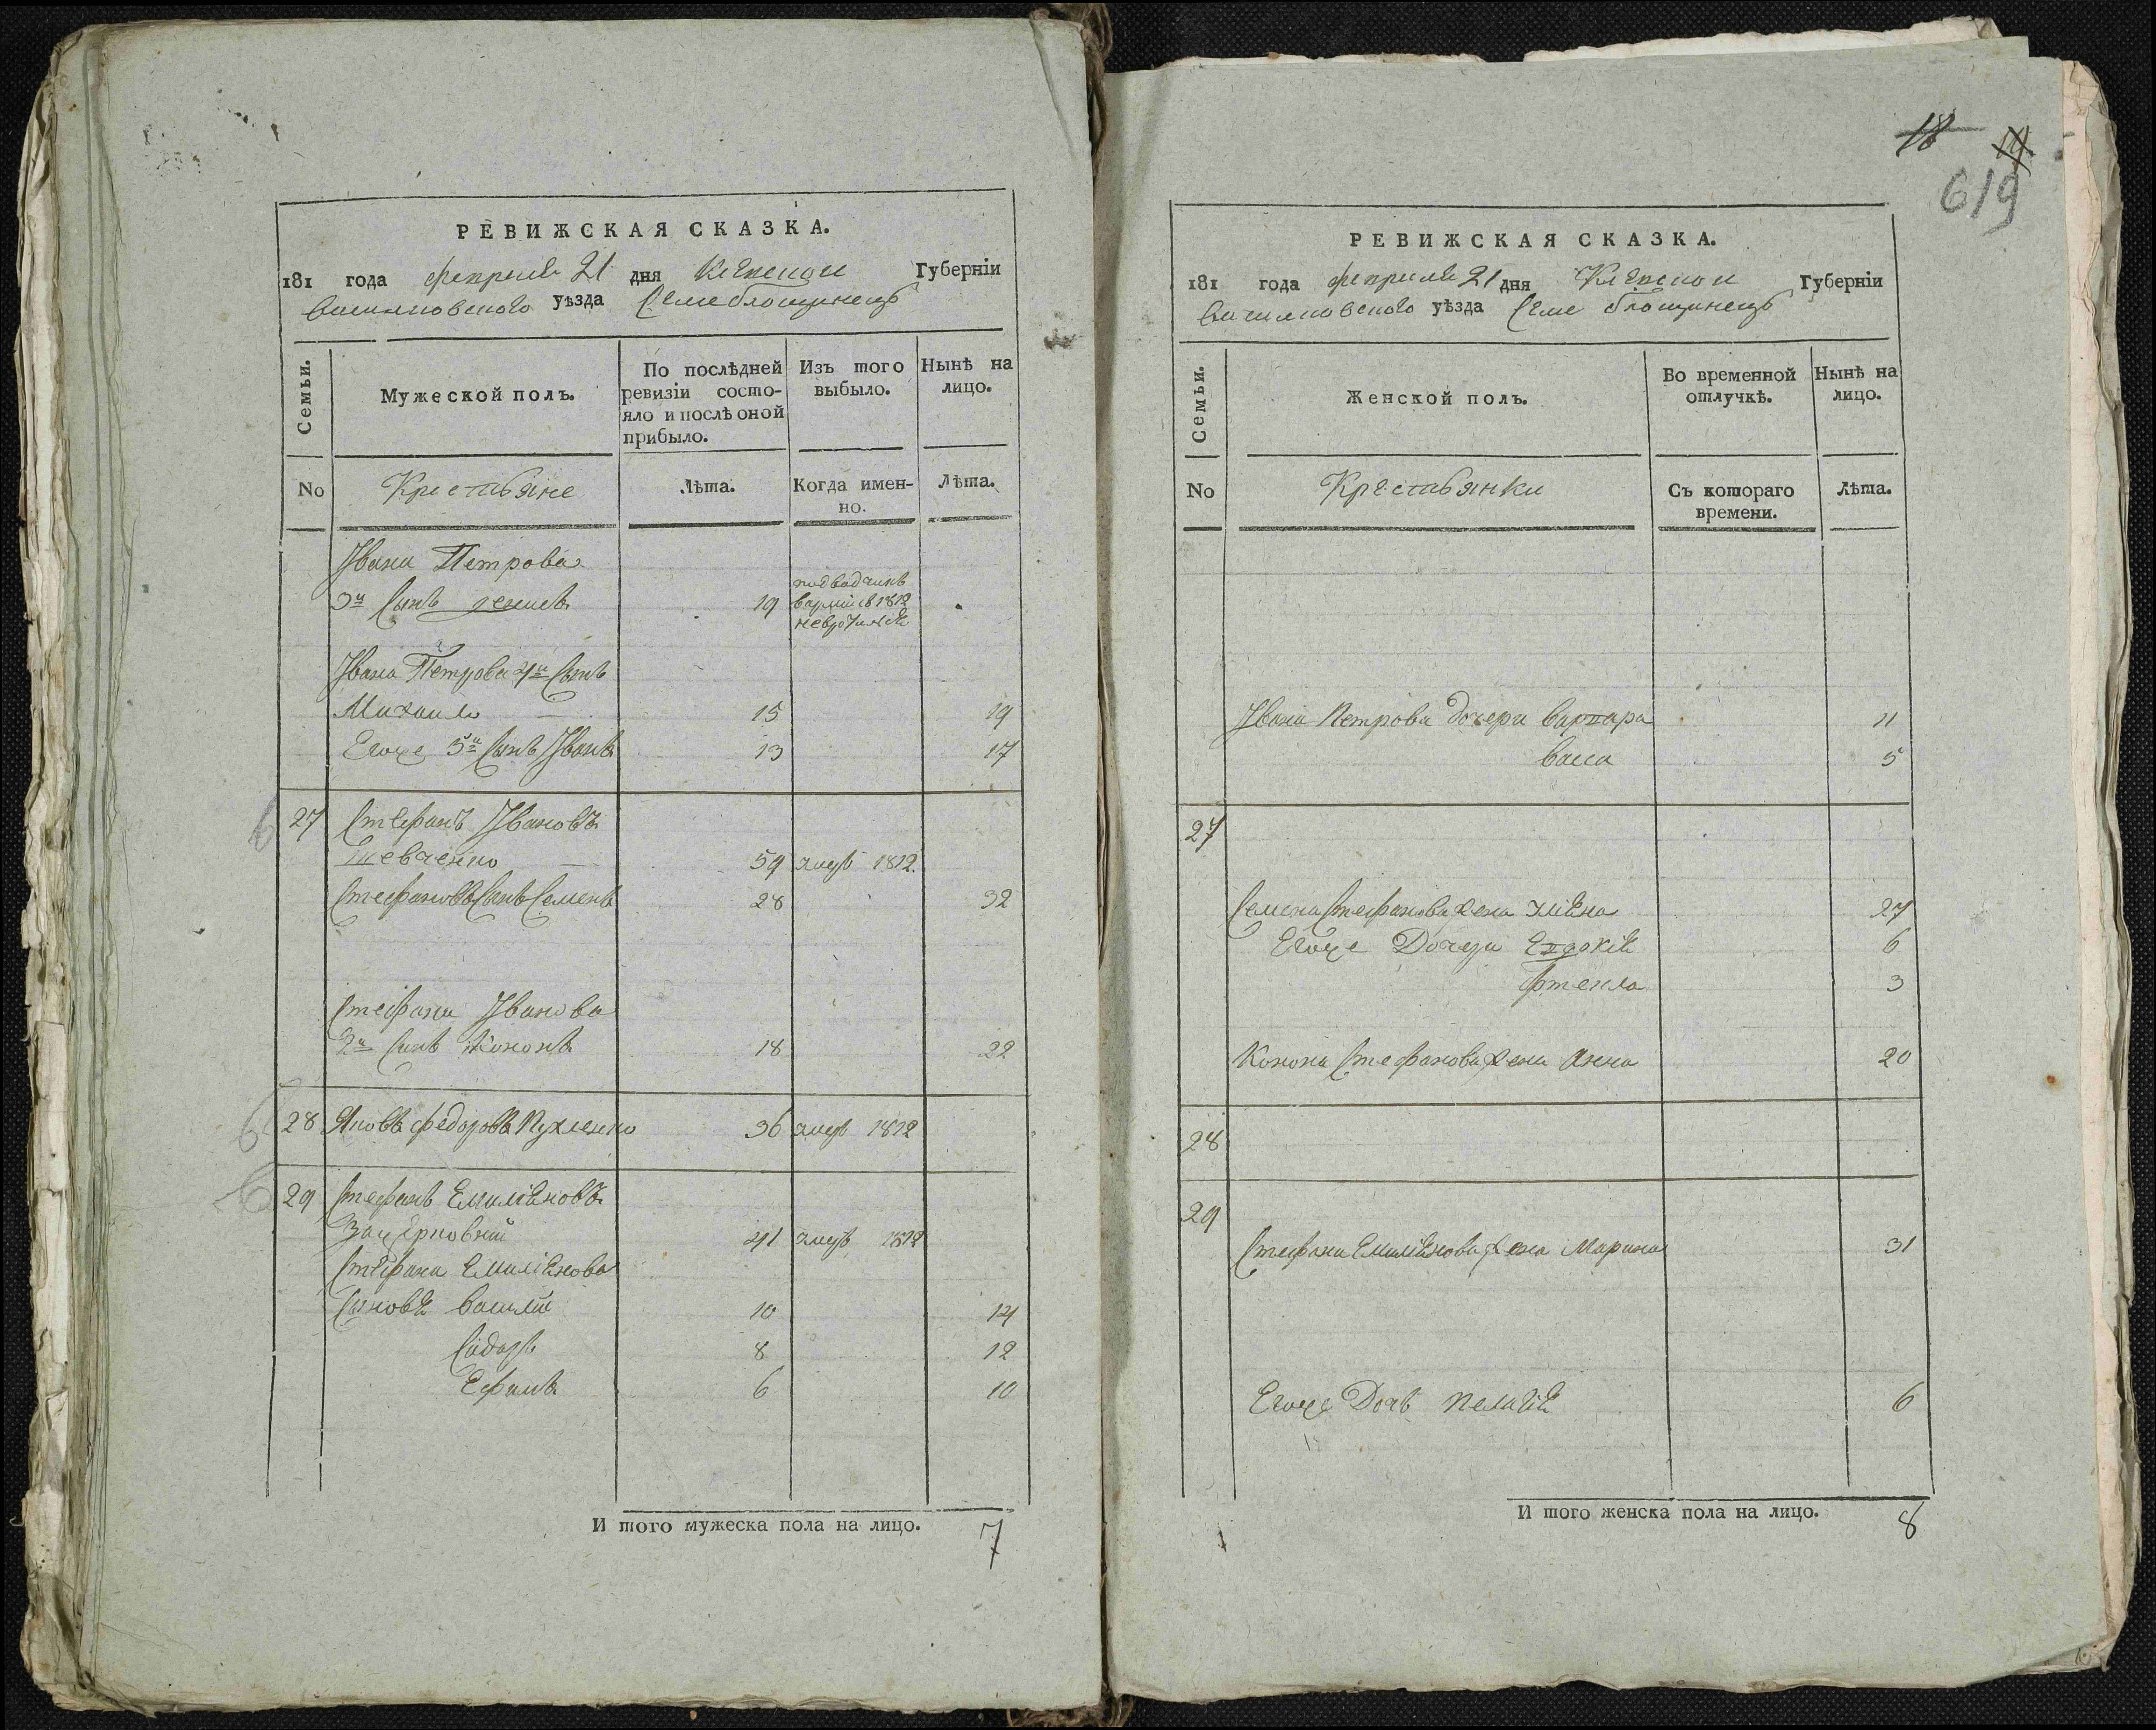 РЕВИЖСКАЯ СКАЗКА.
181 года февраля 21 дня Кіевской Губерніи
Васильковского уѣзда Селе блощинецъ
Семьи.
Мужеской полъ.
По послѣдней ревизіи состояло и послѣ оной прибыло.
Изъ того выбыло.
Нынѣ на лицо.
No
Крестьяне
Лѣта.
Когда именно.
Лѣта.
Ивана Петрова
3й Сынъ 19 1812
Ивана Петрова 4й Сынъ
Михаило 15 19
Егоже 5й Сынъ Иванъ 13 17
27 Стефанъ Ивановъ
Шевченко 59 умеръ 1812.
Стефановъ Сынъ Семенъ 28 32
Стефана Иванова
2й Сынъ Кононъ 18 22
28 Яковъ федоровъ 36 умеръ 1812
29 Стефанъ Емиліановъ
41 умеръ 1812
Стефана Емиліанова
Сыновѣ василій 10 14
Сидоръ 8 12
Ефимъ 6 10
И того мужеска пола на лицо. 7
18
619
РЕВИЖСКАЯ СКАЗКА.
181 года февраля 21 дня Кіевской Губерніи
Васильковского уѣзда Селе блощинецъ
Семьи.
Женской полъ.
Во временной отлучкѣ.
Нынѣ на лицо.
No
Крестьянки
Съ котораго времени.
Лѣта.
Ивана Петрова дочери варвара 11
васса 5
27
Семена Стефанова жена 27
Егоже Дочери Евдокіѣ 6
3
Конона Стефанова жена Анна 20
28
29
Стефана Емиліанова жена Марина 31
Егоже Дочь Пелагіѣ 6
И того женска пола на лицо. 8